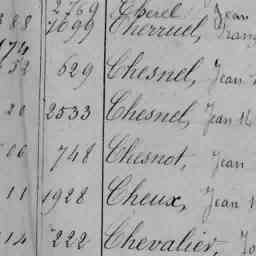 2769 Cherel Jean
88 1099 Cherruel,
174
52 629 Chesnel, Jean
20 2533 Chesnel, Jean
06 748 Chesnot, Jean
11 1928 Cheux, Jean
14 222 Chevalier,